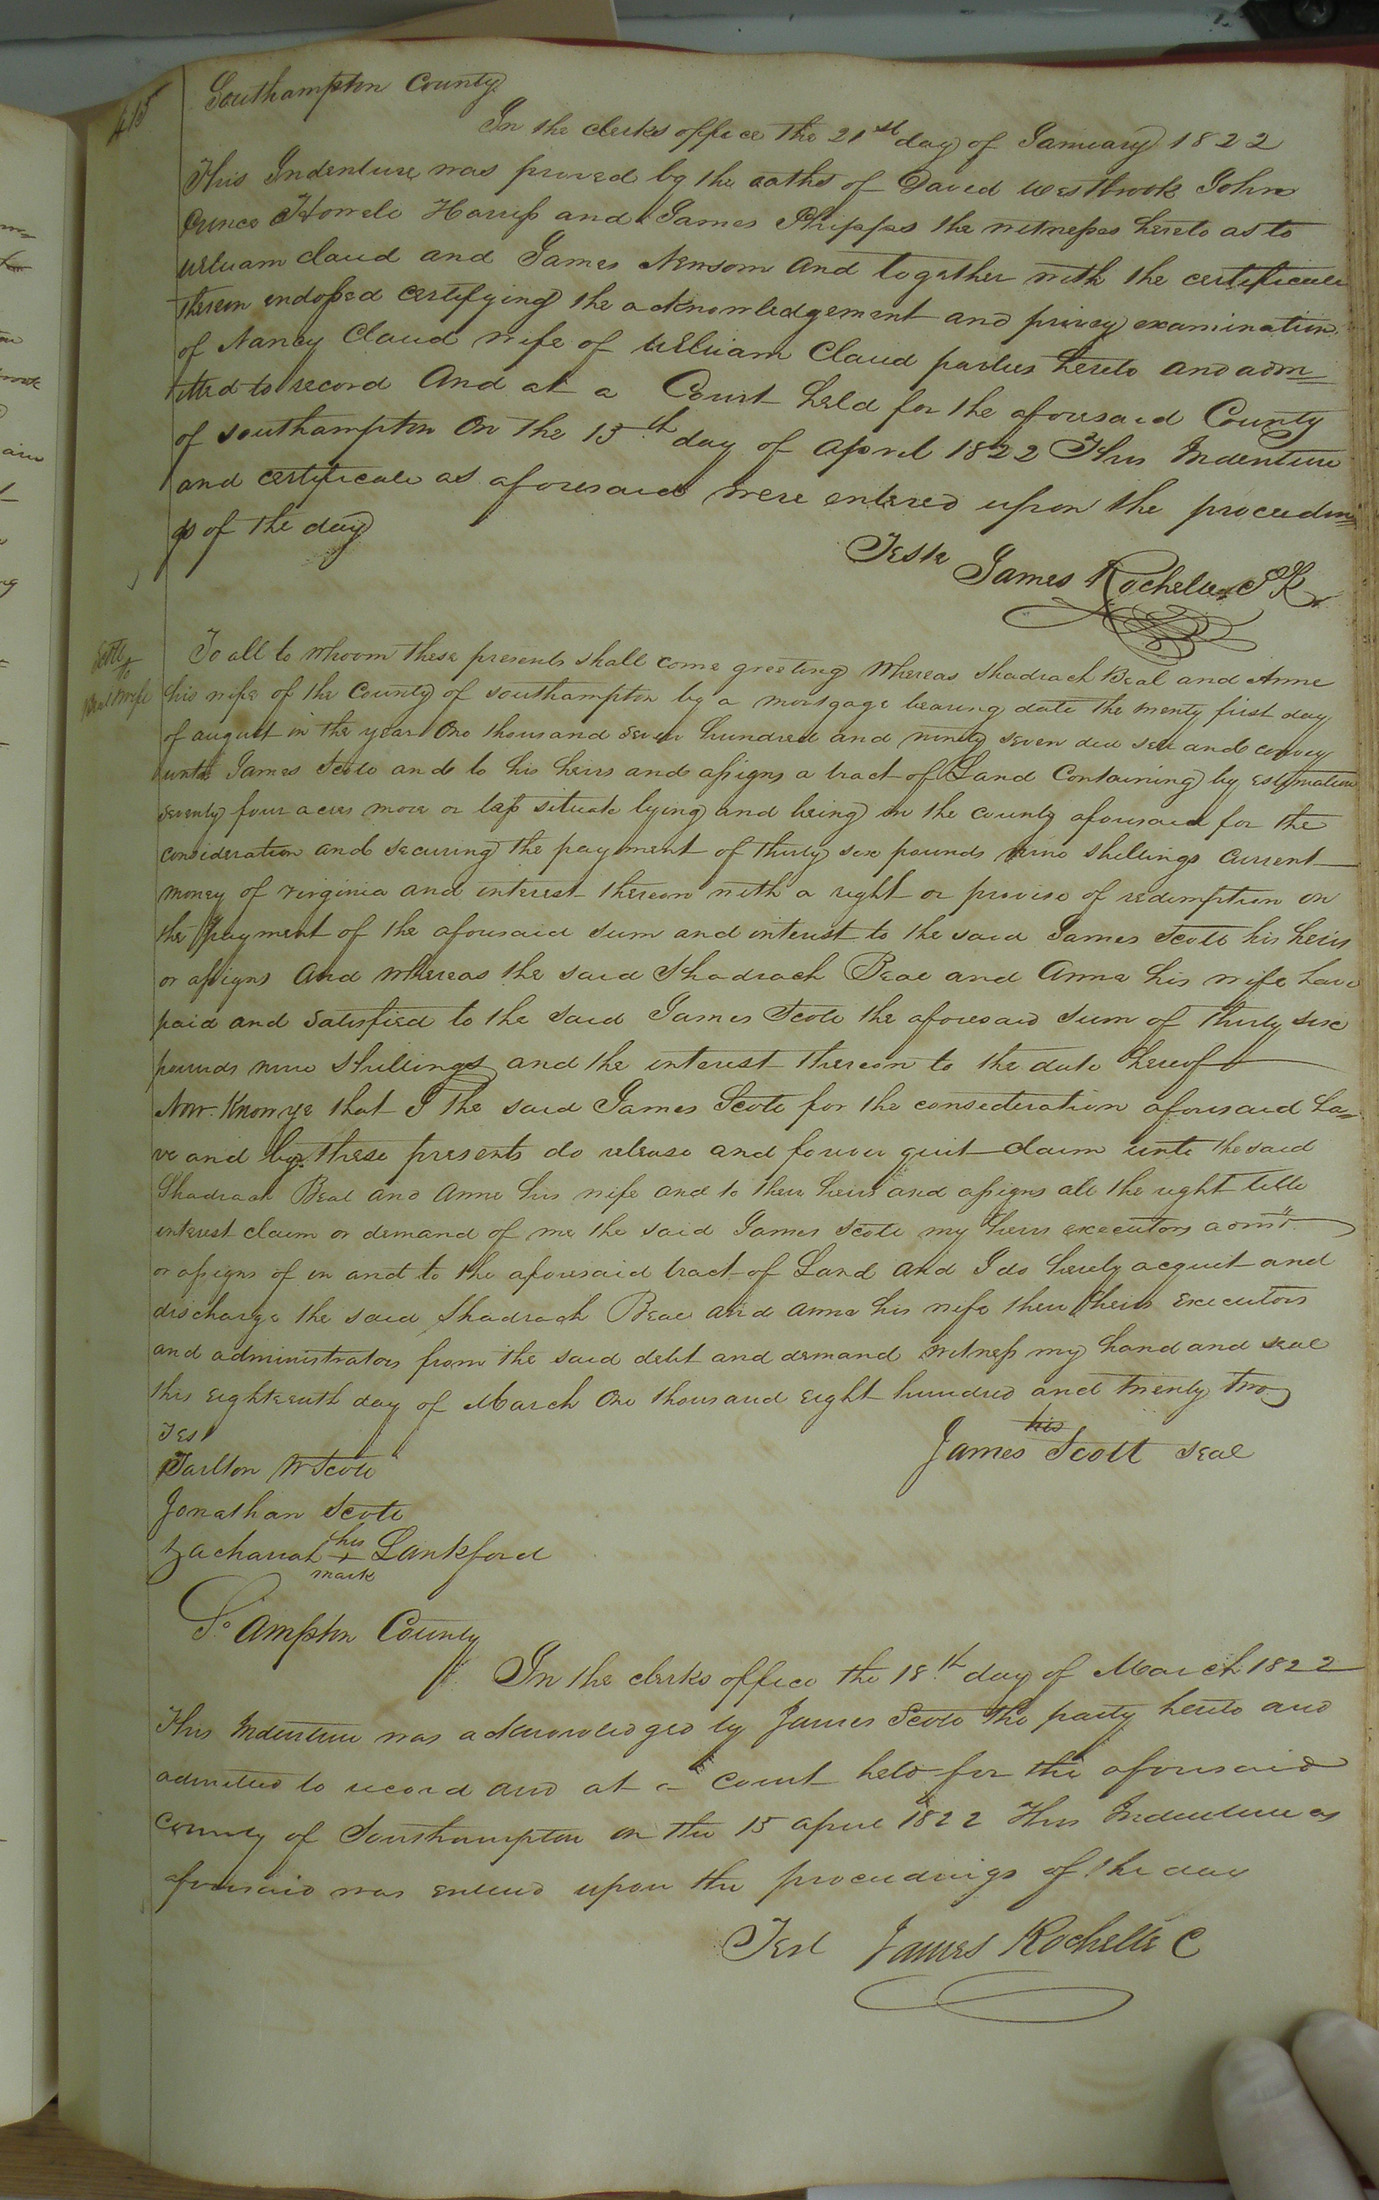 415
Southampton County
In the clerks office the 21st day of January 1822
This Indenture was proved by the oaths of David Westbrook John
Howele Harriss and James Phipps the witnesses hereto as to
William Claud and James Newsom and together with the certificate
thereon endossed certifying the acknowledgement and privey examination
of Nancy Claud wife of William Claud parties hereto and adm=
itted to record And at a Court held for the aforesaid County
of Southampton on the 15th day of April 1822 This Indenture
and certificate as aforesaid were entered upon the proceedin
gs of the day
Teste James Rochelle
Scott
to
Beal & wife
To all to whoom these presents shall come greeting Whereas Shadrach Beal and Anne
his wife of the County of Southampton by a mortgage bearing date the twenty first day
of august in the year One thousand seven hundred and ninety seven did sell and convey
unto James Scott and to his heirs and assigns a tract of Land Containing by estimation
seventy four acres more or less situate lying and being in the county aforesaid for the
consideration and securing the payment of thirty six pounds nine shillings current
money of virginia and interest thereon with a right or proviso of redemption on
the payment of the aforesaid sum and interest to the said James Scott his heirs
or assigns And whereas the said Shadrach Beal and Anne his wife have
paid and satisfied to the said James Scott the aforesaid sum of thirty six
pounds nine shillings and the interest thereon to the date hereof
Now Know ye that I the said James Scott for the consideration aforesaid ha=
ve and by these presents do release and forever quit claim unto the said
Shadrach Beal and Anne his wife and to their heirs and assigns all the right title
interest claim or demand of me the said James Scott my heirs executors admrs
or assigns of in and to the aforesaid tract of Land And I do hereby acquit and
discharge the said Shadrach Beal and Anne his wife their heirs executors
and administrators from the said debt and demand Witness my hand and seal
this eighteenth day of March One thousand eight hundred and twenty two
Test
his
James Scott seal
Tarlton W Scott
Jonathan Scott
his
Zachariah + Lankford
mark
So ampton County
In the clerks office the 18th day of March 1822
This Indenture was acknowledged by James Scott the party hereto and
admitted to record and at a court held for the aforesaid
County of Southampton on the 15 april 1822 This Indenture as
aforesaid was entered upon the proceedings of the day
Test James Rochelle C